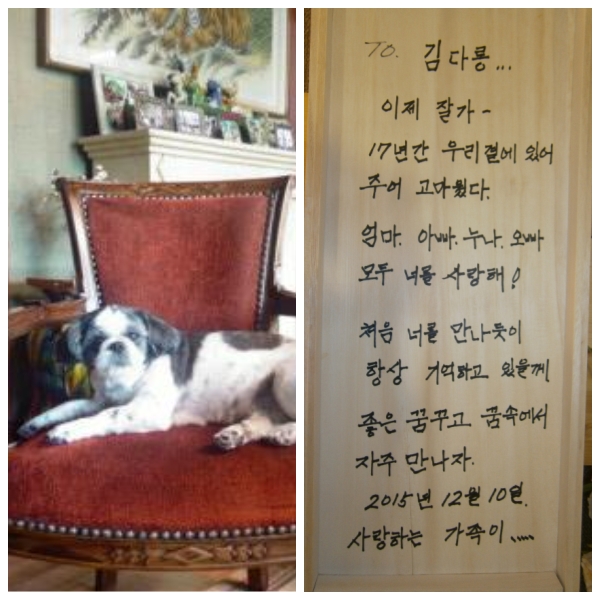 TO. 김다룡...
이제 잘가-
17년간 우리곁에 있어
주어 고마웠다.
엄마. 아빠. 누나. 오빠
모두 너를 사랑해!
처음 너를 만나듯이
항상 기억하고 있을께
좋은 꿈꾸고 꿈속에서
자주 만나자.
2015년 12월 10일.
사랑하는 가족이.....